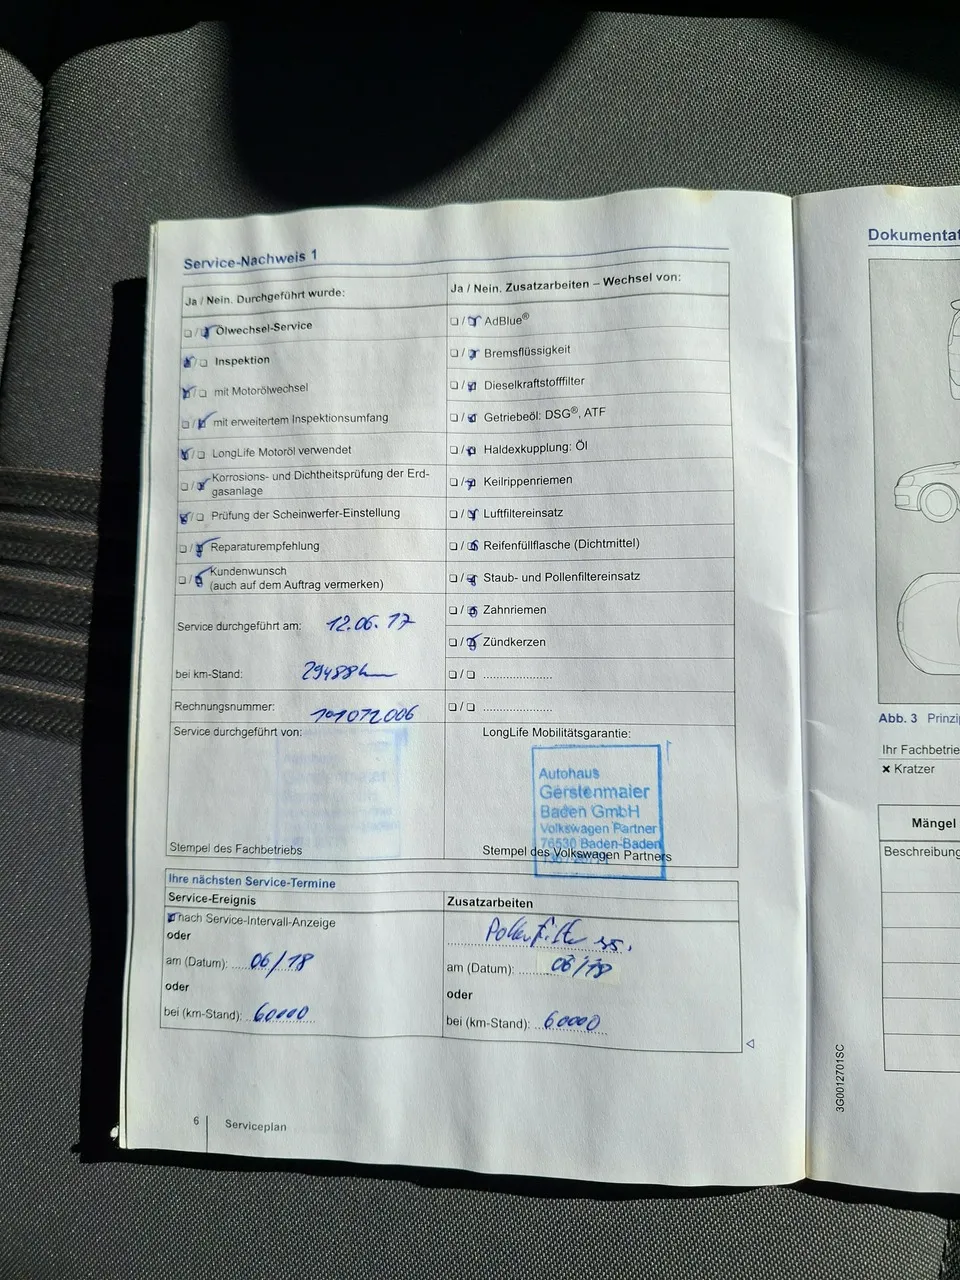 Service-Nachweis 1
Ja / Nein. Durchgeführt wurde:
Ölwechsel-Service
Inspektion
mit Motorölwechsel
mit erweitertem Inspektionsumfang
LongLife Motoröl verwendet
Korrosions- und Dichtheitsprüfung der Erd-
gasanlage
Prüfung der Scheinwerfer-Einstellung
Reparaturempfehlung
Kundenwunsch
(auch auf dem Auftrag vermerken)
Service durchgeführt am: 12.06.17
bei km-Stand: 29488km
Rechnungsnummer: 101072006
Service durchgeführt von:
Stempel des Fachbetriebs
Ja / Nein. Zusatzarbeiten – Wechsel von:
AdBlue®
Bremsflüssigkeit
Dieselkraftstofffilter
Getriebeöl: DSG®, ATF
Haldexkupplung: Öl
Keilrippenriemen
Luftfiltereinsatz
Reifenfüllflasche (Dichtmittel)
Staub- und Pollenfiltereinsatz
Zahnriemen
Zündkerzen
LongLife Mobilitätsgarantie:
Autohaus
Gerstenmaier
Baden GmbH
Volkswagen Partner
76530 Baden-Baden
Stempel des Volkswagen Partners
Ihre nächsten Service-Termine
Service-Ereignis
nach Service-Intervall-Anzeige
oder
am (Datum): 06/18
oder
bei (km-Stand): 60000
Zusatzarbeiten
Pollenfilter
am (Datum): 06/18
oder
bei (km-Stand): 60000
6
Serviceplan
Dokumentat
Abb. 3 Prinzi
Ihr Fachbetrie
× Kratzer
Mängel
Beschreibung
3G0012701SC